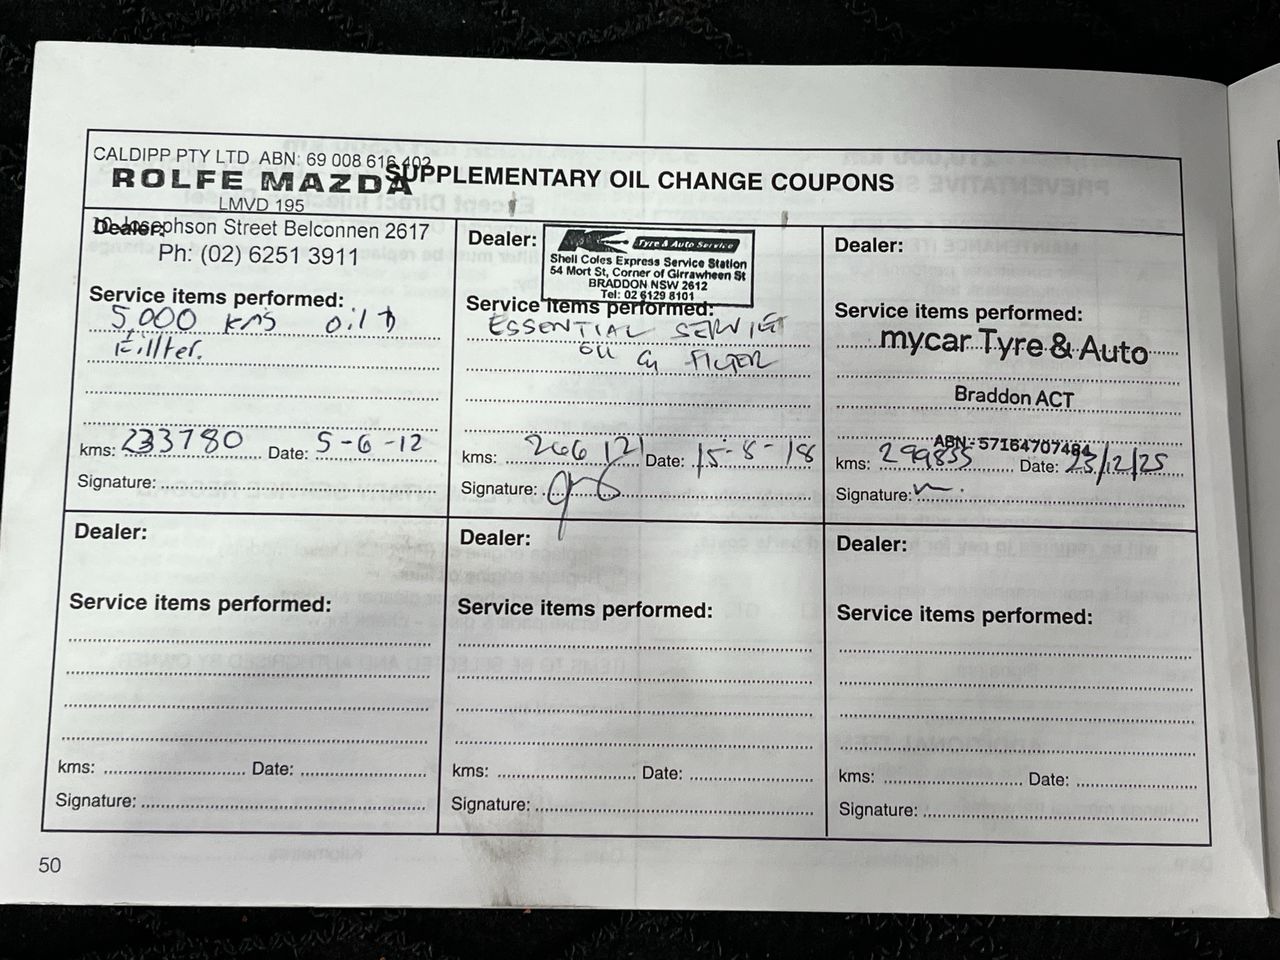 CALDIPP PTY LTD ABN: 69 008 616 402
ROLFE MAZDA
LMVD 195
SUPPLEMENTARY OIL CHANGE COUPONS
Dealer:
10 Josephson Street Belconnen 2617
Ph: (02) 6251 3911
Service items performed:
5,000 kms oil &
Fillter.
kms: 233780 Date: 5-6-12
Signature:
Dealer:
K Tyre & Auto Service
Shell Coles Express Service Station
54 Mort St, Corner of Girrawheen St
BRADDON NSW 2612
Tel: 02 6129 8101
Service items performed:
ESSENTIAL SERVICE
OIL & FILTER
kms: 266121 Date: 15-8-18
Signature:
Dealer:
Service items performed:
mycar Tyre & Auto
Braddon ACT
ABN - 57164707484
kms: 299835 Date: 23/12/25
Signature:
Dealer:
Service items performed:
kms: Date:
Signature:
Dealer:
Service items performed:
kms: Date:
Signature:
Dealer:
Service items performed:
kms: Date:
Signature:
50